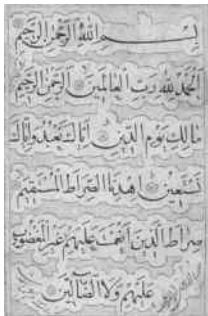 بسم الله الرحمن الرحيم
الحمد لله رب العالمين الرحمن الرحيم
مالك يوم الدين اياك نعبد واياك
نستعين اهدنا الصراط المستقيم
صراط الذين انعمت عليهم غير المغضوب
عليهم ولا الضالين